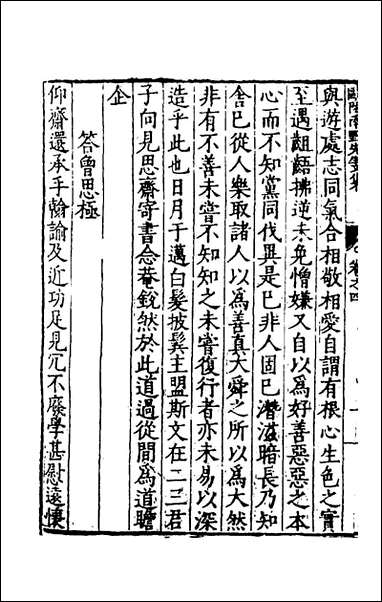 歐陽南野先生文集 卷之四
與遊處志同氣合相敬相愛自謂有根心生色之實
至遇齟齬拂逆未免憎嫌又自以為好善惡惡之本
心而不知黨同伐異是已非人固已潛滋暗長乃知
舍已從人樂取諸人以為善真大舜之所以為大然
非有不善未嘗不知知之未嘗復行者亦未易以深
造乎此也日月于邁白髮披鬂主盟斯文在二三君
子向見思齋寄書念菴銳然於此道過從間為道瞻
企
答曾思極
仰齋還承手翰諭及近功足見冗不廢學甚慰遠懷